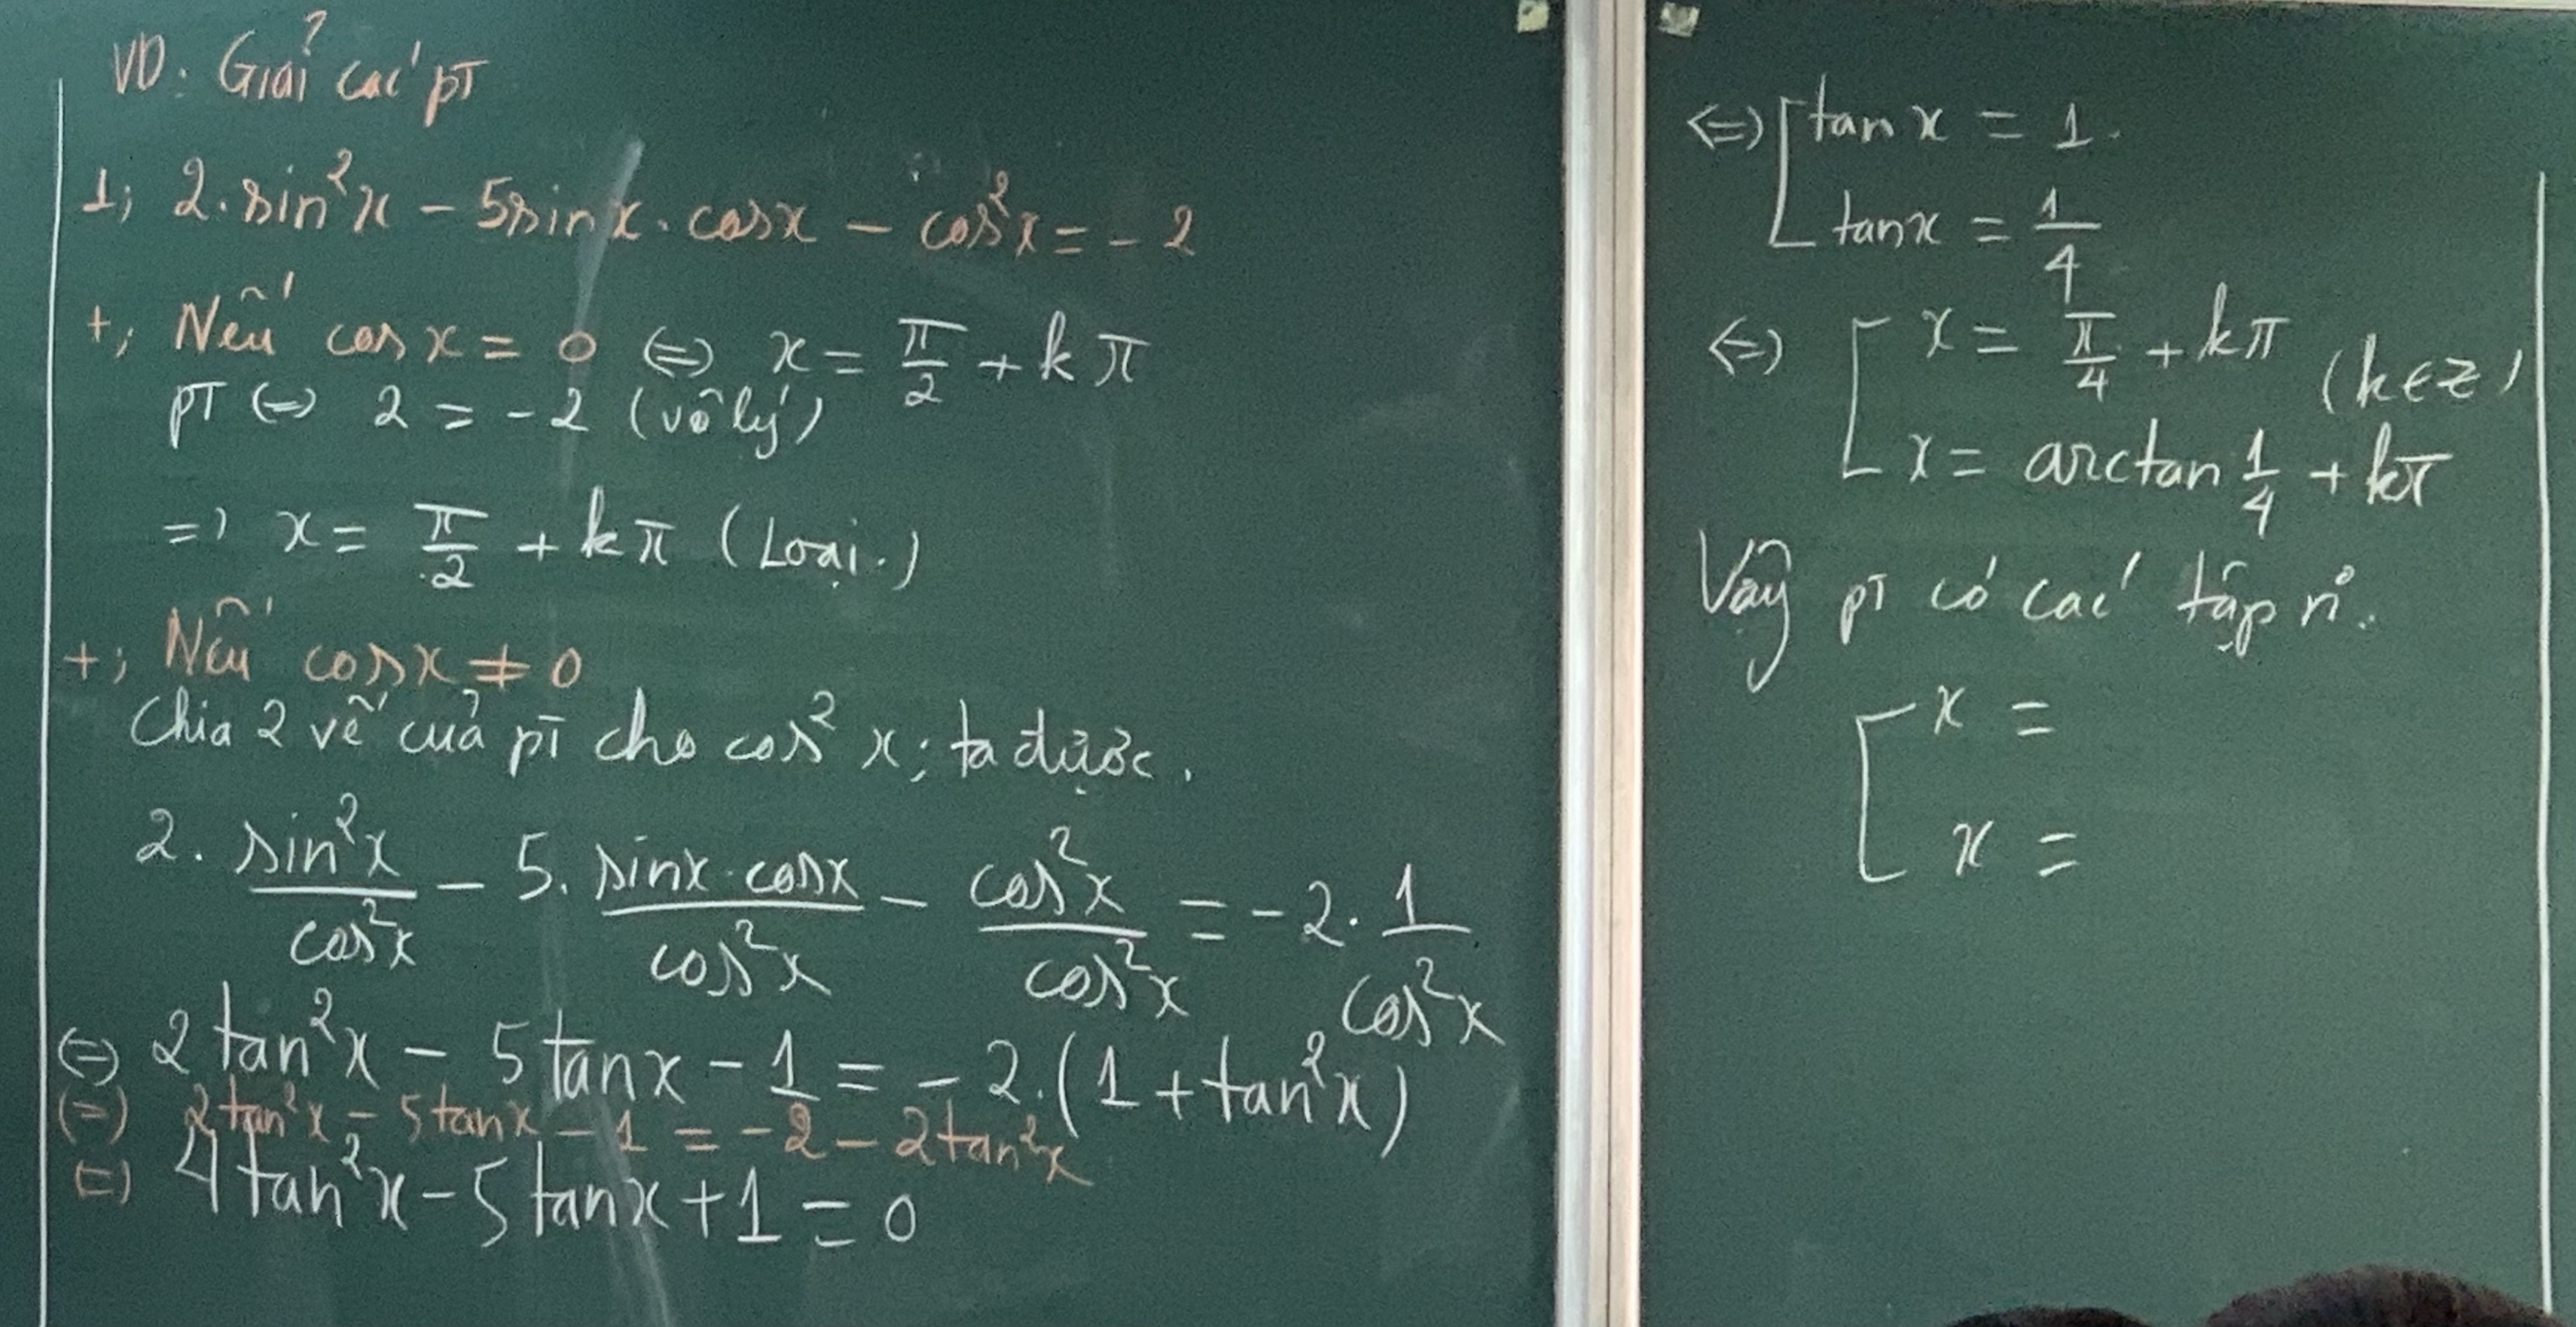 VD: Giải các pT
1; 2.sin²x − 5sinx.cosx − cos²x = −2
+; Nếu cosx = 0 ⇔ x = π/2 + kπ
pT ⇔ 2 = −2 (vô lý)
=> x = π/2 + kπ (Loại.)
+; Nếu cosx ≠ 0
Chia 2 vế của pT cho cos²x; ta được.
2. sin²x/cos²x − 5. sinx.cosx/cos²x − cos²x/cos²x = −2. 1/cos²x
⇔ 2tan²x − 5tanx − 1 = −2.(1 + tan²x)
(=) 2tan²x − 5tanx − 1 = −2 − 2tan²x
(=) 4tan²x − 5tanx + 1 = 0
⇔ [ tanx = 1.
tanx = 1/4
⇔ [ x = π/4 + kπ (k∈Z)
x = arctan 1/4 + kπ
Vậy pT có các tập n⁰.
[ x =
x =